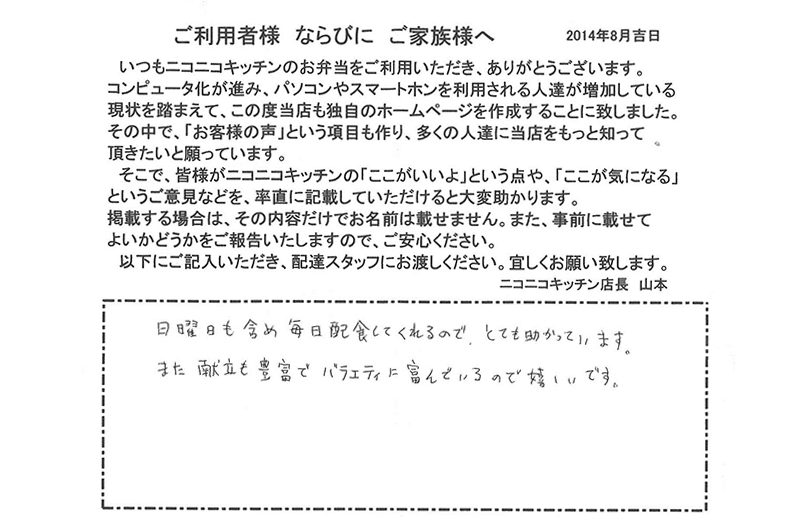 ご利用者様 ならびに ご家族様へ 2014年8月吉日
いつもニコニコキッチンのお弁当をご利用いただき、ありがとうございます。
コンピュータ化が進み、パソコンやスマートホンを利用される人達が増加している
現状を踏まえて、この度当店も独自のホームページを作成することに致しました。
その中で、「お客様の声」という項目も作り、多くの人達に当店をもっと知って
頂きたいと願っています。
そこで、皆様がニコニコキッチンの「ここがいいよ」という点や、「ここが気になる」
というご意見などを、率直に記載していただけると大変助かります。
掲載する場合は、その内容だけでお名前は載せません。また、事前に載せて
よいかどうかをご報告いたしますので、ご安心ください。
以下にご記入いただき、配達スタッフにお渡しください。宜しくお願い致します。
ニコニコキッチン店長 山本
日曜日も含め毎日配食してくれるので、とても助かっています。
また献立も豊富でバラエティに富んでいるので嬉しいです。